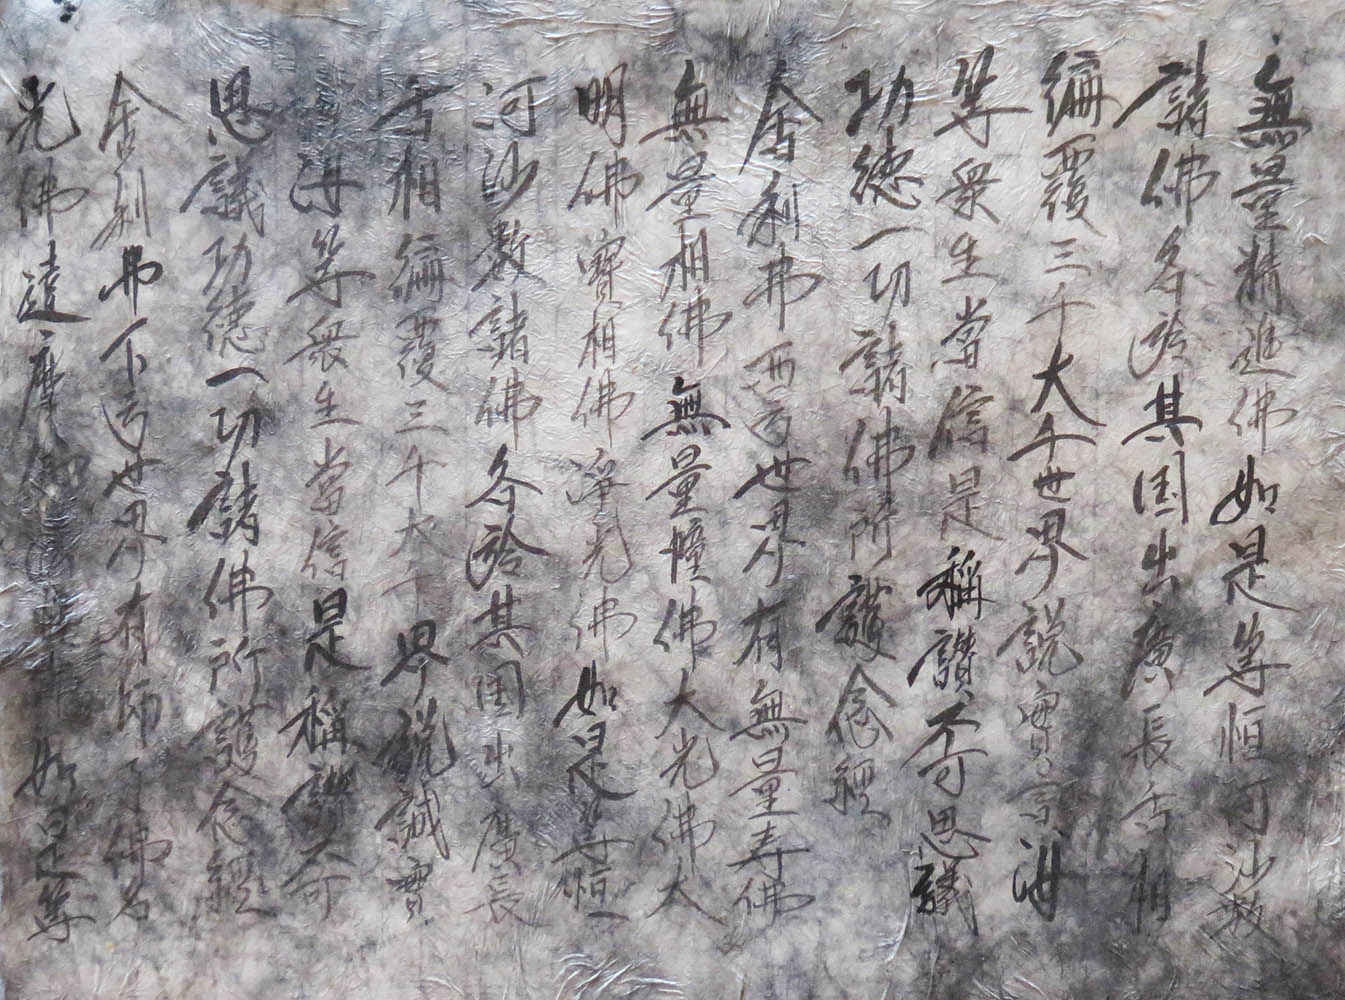 無量精進佛如是等恒河沙數
諸佛各於其国出廣長舌相
徧覆三千大千世界說實言汝
等衆生當信是稱讚不可思議
功德一切諸佛所護念經
舍利弗西方世界有無量寿佛
無量相佛無量幢佛大光佛大
明佛寶相佛淨光佛如是等恒
河沙數諸佛各於其国出廣長
舌相徧覆三千大千界說誠實
言汝等衆生當信是稱讚不可
思議功德一切諸佛所護念經
舍利弗下方世界有師子佛名
光佛達摩佛如是等